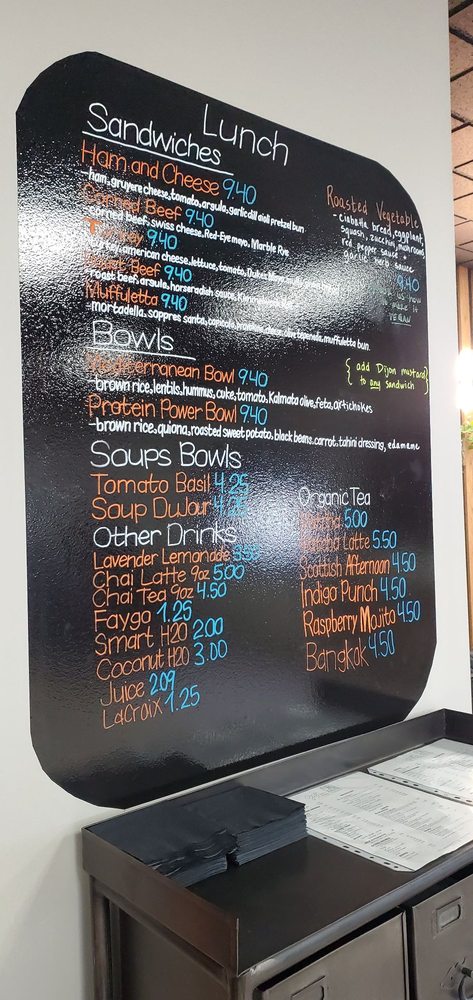 Lunch
Sandwiches
Ham and Cheese 9.40
-ham, gruyere cheese, tomato, argula, garlic dill aioli pretzel bun
Corned Beef 9.40
corned beef, swiss cheese, Red-Eye mayo, Marble Rye
Turkey 9.40
turkey, american cheese, lettuce, tomato, Dukes
Roast Beef 9.40
roast beef, arsula, horseradish sauce,
Muffuletta 9.40
-mortadella, sappres santa, capicola, provolone cheese, olive tapenade, muffuletta bun.
Roasted Vegetable
- ciabatta bread, eggplant,
squash, zucchini, mushrooms
red pepper sauce +
garlic herb sauce
9.40
us how
make it
VEGAN
{ add Dijon mustard }
to any sandwich
Bowls
Mediterranean Bowl 9.40
-brown rice, lentils, hummus, cuke, tomato, Kalmata olive, feta, artichokes
Protein Power Bowl 9.40
-brown rice, quiona, roasted sweet potato, black beans, carrot, tahini dressing, edamame
Soups Bowls
Tomato Basil 4.25
Soup DuJour 4.25
Other Drinks
Lavender Lemonade 3.50
Chai Latte 9oz 5.00
Chai Tea 9oz 4.50
Faygo 1.25
Smart H2O 2.00
Coconut H2O 3.00
Juice 2.09
LaCroix 1.25
Organic Tea
Matcha 5.00
Matcha Latte 5.50
Scottish Afternoon 4.50
Indigo Punch 4.50
Raspberry Mojito 4.50
Bangkok 4.50